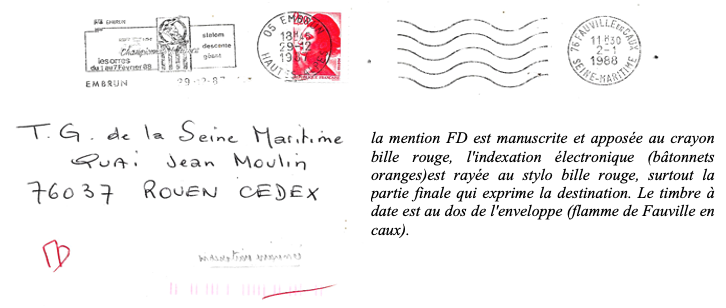 EMBRUN
slalom
descente
géant
Championnats
les orres
du 1 au 7 Février 88
EMBRUN
29-12-87
05 EMBRUN
18H45
29-12
1987
HAUTES
76 FAUVILLE EN CAUX
11H30
2-1
1988
SEINE-MARITIME
T.G. de la Seine Maritime
QUAI Jean Moulin
76037 ROUEN CEDEX
FD
la mention FD est manuscrite et apposée au crayon
bille rouge, l'indexation électronique (bâtonnets
oranges)est rayée au stylo bille rouge, surtout la
partie finale qui exprime la destination. Le timbre à
date est au dos de l'enveloppe (flamme de Fauville en
caux).